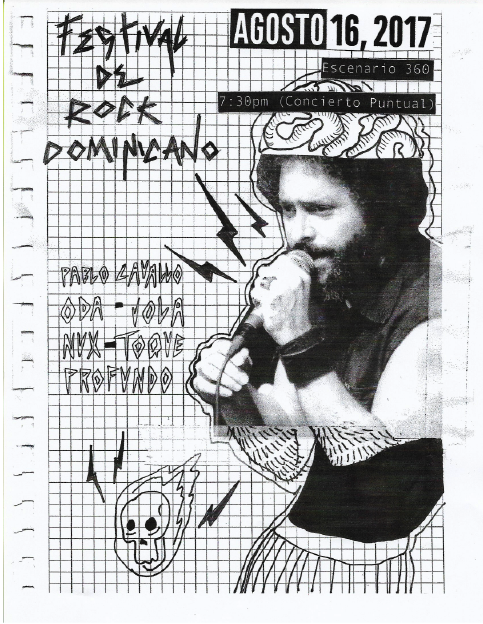 FESTIVAL
DE
ROCK
DOMINICANO
AGOSTO 16, 2017
Escenario 360
7:30pm (Concierto Puntual)
PABLO CAVALLO
ODA - JOLA
NUX - TOQUE
PROFUNDO